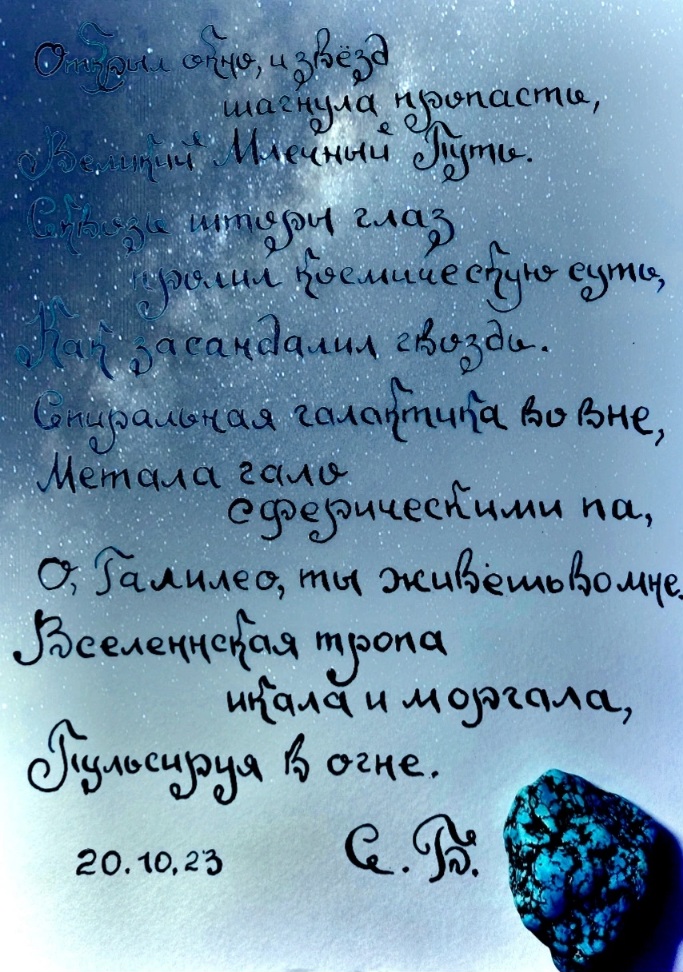 Открыл окно, и звёзд
шагнула пропасть,
Великий Млечный Путь.
Сквозь шторы глаз
пролил космическую суть,
Как засандалил гвоздь.
Спиральная галактика во вне,
Метала гало
сферическими па,
О, Галилео, ты живёшь во мне.
Вселеннская тропа
икала и моргала,
Пульсируя в огне.
20.10.23 С.Б.